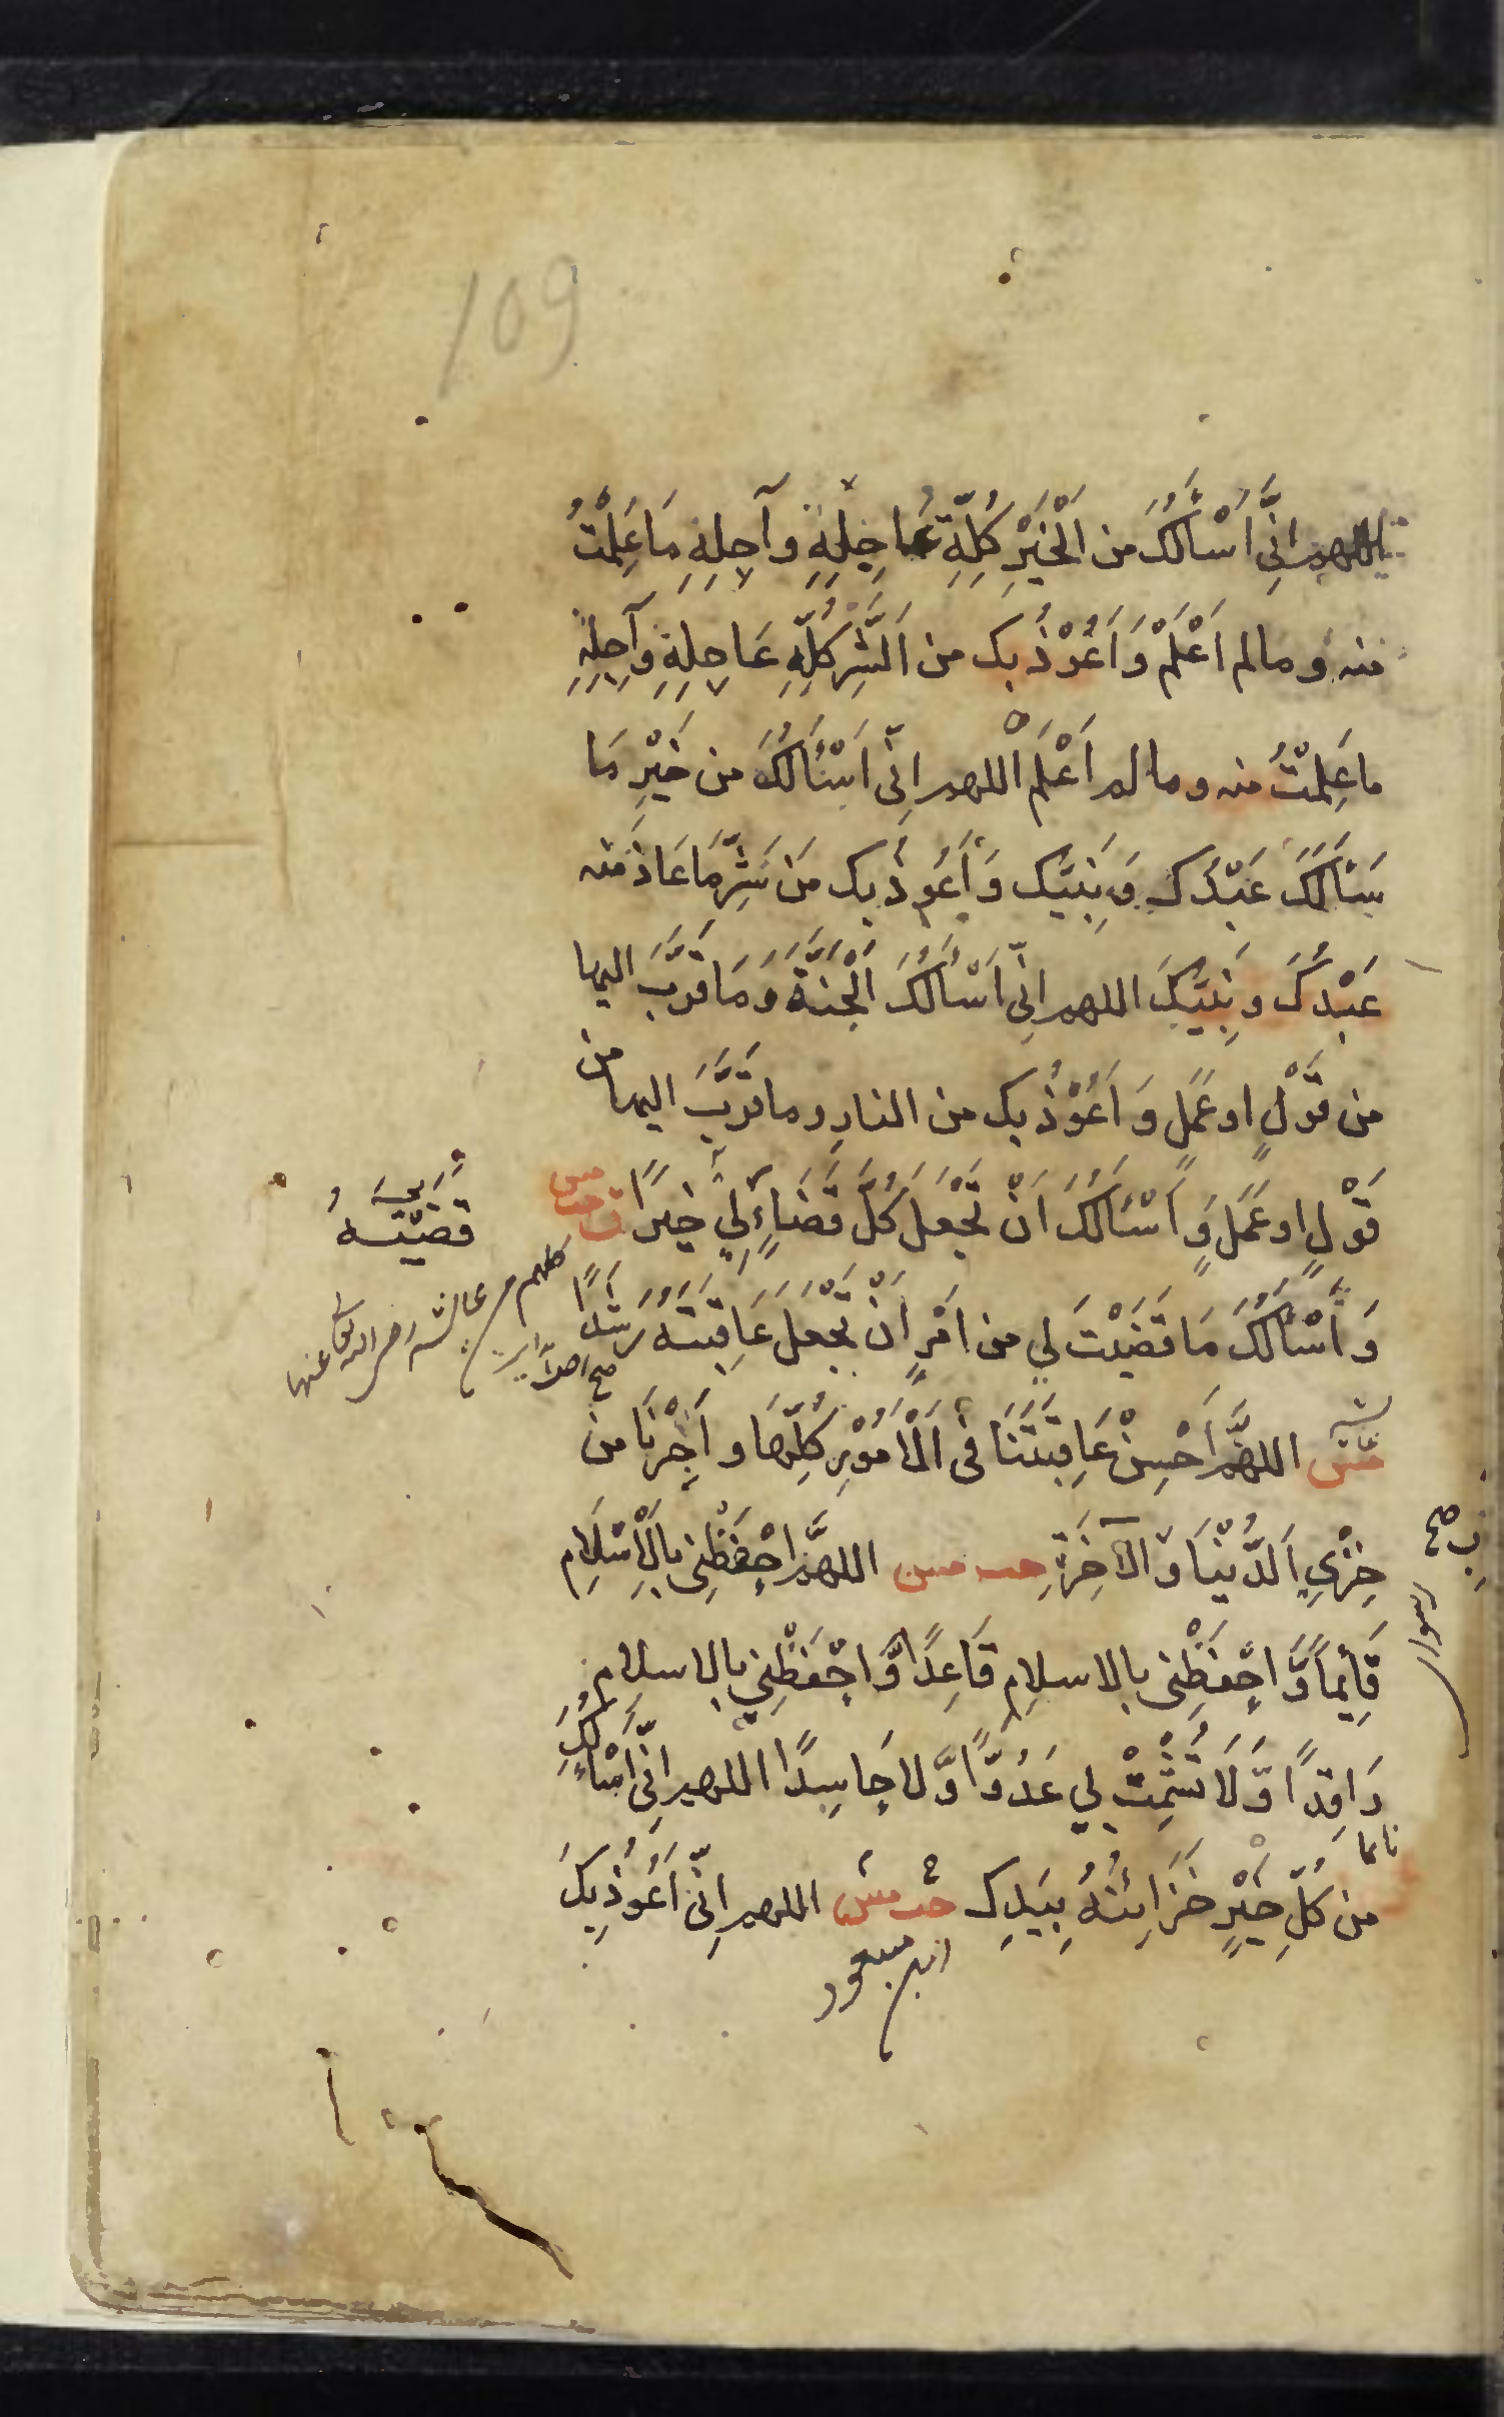 109
اللهم اِنِّي اَسْأَلُكَ من اَلْخَيْرِ كُلِّهِ عَاجِلِهِ وآجِلِهِ مَا عَلِمْتُ
منه وما لم اَعْلَمْ وَاَعُوْذُ بك من اَلشَّرِّ كُلِّهِ عَاجِلِهِ وَآجِلِهِ
ما عَلِمْتُ منه وما لم اَعْلَمْ اللهم اِنِّي اَسْئَالُكَ من خَيْرِ مَا
سَئَالَكَ عَبْدُكَ وَنَبِيُّكَ وَاَعُوذُ بك مِن شَرِّ مَا عَاذَ منه
عَبْدُكَ ونَبِيُّكَ اللهم اِنِّي اَسْأَلُكَ اَلْجَنَّةَ وَمَا قَرَّبَ اليها
من قَوْلٍ او عَمَلٍ وَاَعُوْذُ بك من النارِ وما قَرَّبَ اليها من
قَوْلٍ او عَمَلٍ وَاَسْئَالُكَ اَنْ تَجْعَلَ كُلَّ قَضَاءٍ لِي خَيْرًا ق حب مس
قَضَيْتَهُ
كلهم عن عائشه رضى الله تعالى عنها
وَاَسْأَلُكَ مَا قَضَيْتَ لي من اَمْرٍ اَنْ تَجْعَلَ عَاقِبَتَهُ رَشَدًا
مس اللهُمَّ اَحْسِنْ عَاقِبَتَنَا في اَلْاُمُوْرِ كُلِّهَا و اَجِرْنَا من
خِزْيِ اَلدُّنْيَا وَالآخِرَةِ حب مس اللهُمَّ احْفَظْنِي بِالْاِسْلَامِ
قَائِماً وَّاحْفَظْنِي بالاسلامِ قَاعِدًا وَّاحْفَظْنِي بالاسلام
رَاقِداً وَّلَا تُشْمِتْ بي عَدُوًّا وَّلا حَاسِدًا اللهم اِنِّي اَسْأَلُكَ
نايما
من كُلِّ خَيْرٍ خَزَائِنُهُ بِيَدِكَ حب مس اللهم اِنِّي اَعُوْذُ بِكَ
ابن مسعود